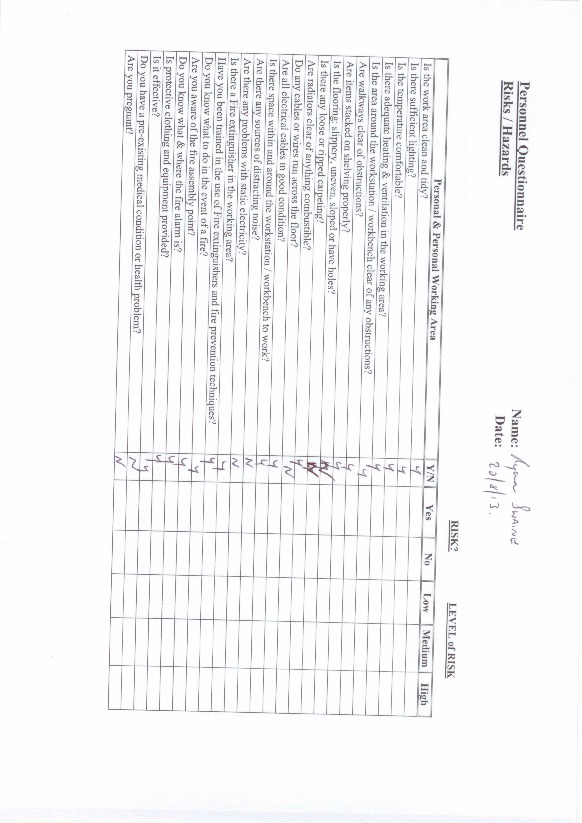 Personnel Questionnaire
Risks / Hazards
Name: Ryan Swaine
Date: 20/8/13.
RISK? LEVEL of RISK
Personal & Personal Working Area Y/N Yes No Low Medium High
Is the work area clean and tidy? Y
Is there sufficient lighting? Y
Is the temperature comfortable? Y
Is there adequate heating & ventilation in the working area? Y
Is the area around the workstation / workbench clear of any obstructions? Y
Are walkways clear of obstructions? Y
Are items stacked on shelving properly? Y
Is the flooring; slippery, uneven, sloped or have holes? N
Is there any loose or ripped carpeting? N
Are radiators clear of anything combustible? Y
Do any cables or wires run across the floor? N
Are all electrical cables in good condition? Y
Is there space within and around the workstation / workbench to work? Y
Are there any sources of distracting noise? N
Are there any problems with static electricity? N
Is there a Fire extinguisher in the working area? Y
Have you been trained in the use of Fire extinguishers and fire prevention techniques? Y
Do you know what to do in the event of a fire? Y
Are you aware of the fire assembly point? Y
Do you know what & where the fire alarm is? Y
Is protective clothing and equipment provided? Y
Is it effective? Y
Do you have a pre-existing medical condition or health problem? N
Are you pregnant? N